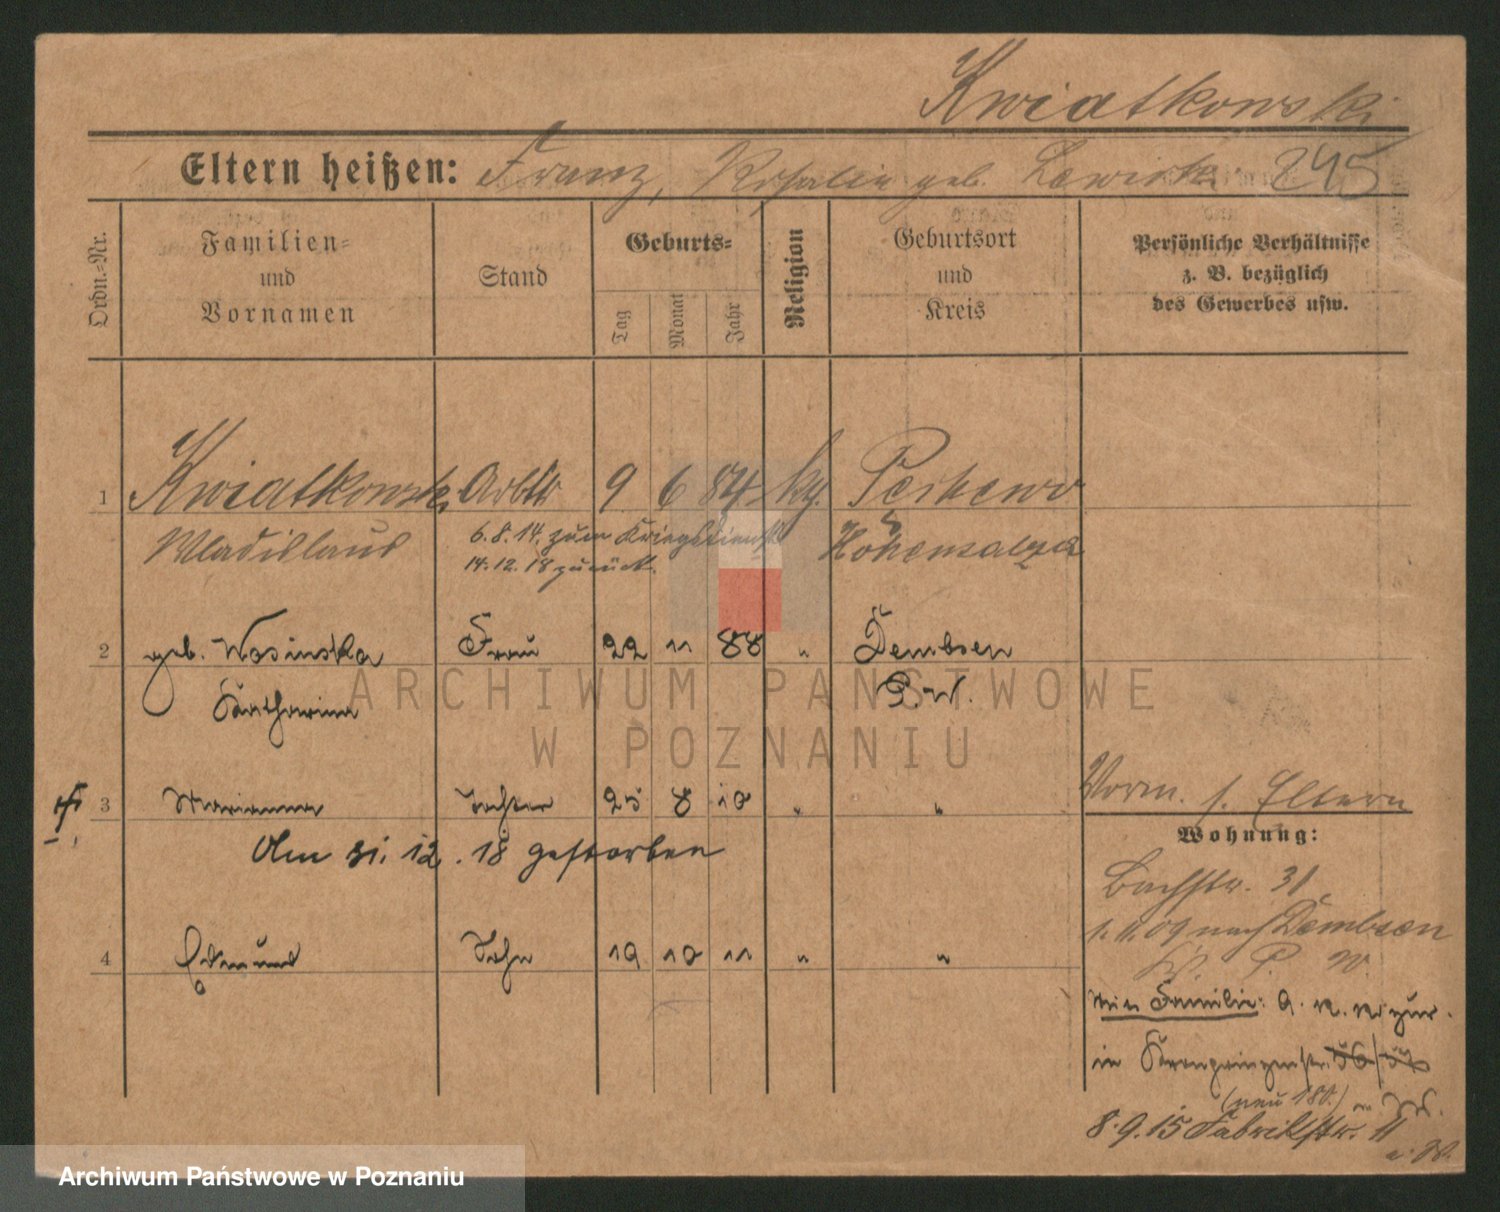 Kwiatkowski
Eltern heißen: Franz, Rosalie geb. 245
Ordn.=Nr.
Familien=
und
Vornamen
Stand
Geburts=
Tag
Monat
Jahr
Religion
Geburtsort
und
Kreis
Persönliche Verhältnisse
z. B. bezüglich
des Gewerbes usw.
1 Kwiatkowski Arbtr 9 6 84 kg.
Wladislaus
6.8.14. zum Kriegsdienst
14.12.18 zurück.
Hohensalza
2 geb. Wosinska Frau 22 11 88 " Dembsen
Katharina P.W.
3 Marianna Tochter 25 8 10 " "
Am 31.12.18 gestorben
4 Edmund Sohn 19 10 11 " "
Vorm. s. Eltern
Wohnung:
Bachstr. 31
nach Dembsen
P. W.
Familie: 9. zur.
in Kronprinzenstr.
(neu 180.)
8.9.15 Fabrikstr. 11
ARCHIWUM PAŃSTWOWE
W POZNANIU
Archiwum Państwowe w Poznaniu